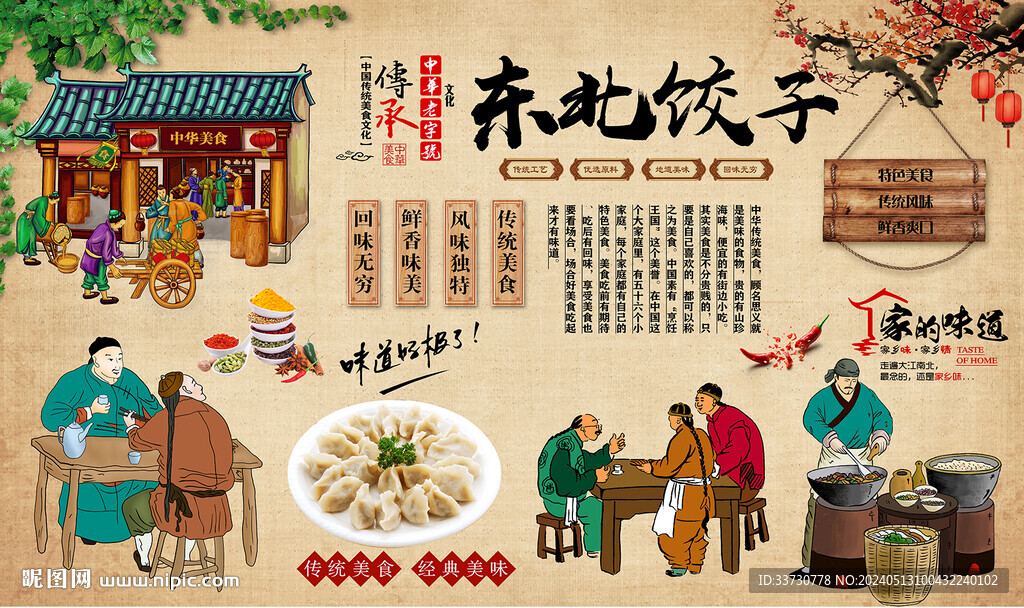 中华美食
【中国传统美食文化】
傳承
中華美食
中華老字號
文化
东北饺子
传统工艺
优选原料
地道美味
回味无穷
特色美食
传统风味
鲜香爽口
传统美食
风味独特
鲜香味美
回味无穷
中华传统美食，顾名思义就
是美味的食物，贵的有山珍
海味，便宜的有街边小吃。
其实美食是不分贵贱的，只
要是自己喜欢的，都可以称
之为美食。中国素有“烹饪
王国”这个美誉。在中国这
个大家庭里，有五十六个小
家庭，每个家庭都有自己的
特色美食。美食吃前有期待
、吃后有回味，享受美食也
要看场合，场合好美食吃起
来才有味道。
家的味道
家乡味·家乡情
TASTE
OF HOME
走遍大江南北，
最念的，还是家乡味...
味道好极了！
传统美食
经典美味
昵图网 www.nipic.com
ID:33730778 NO:20240513100432240102